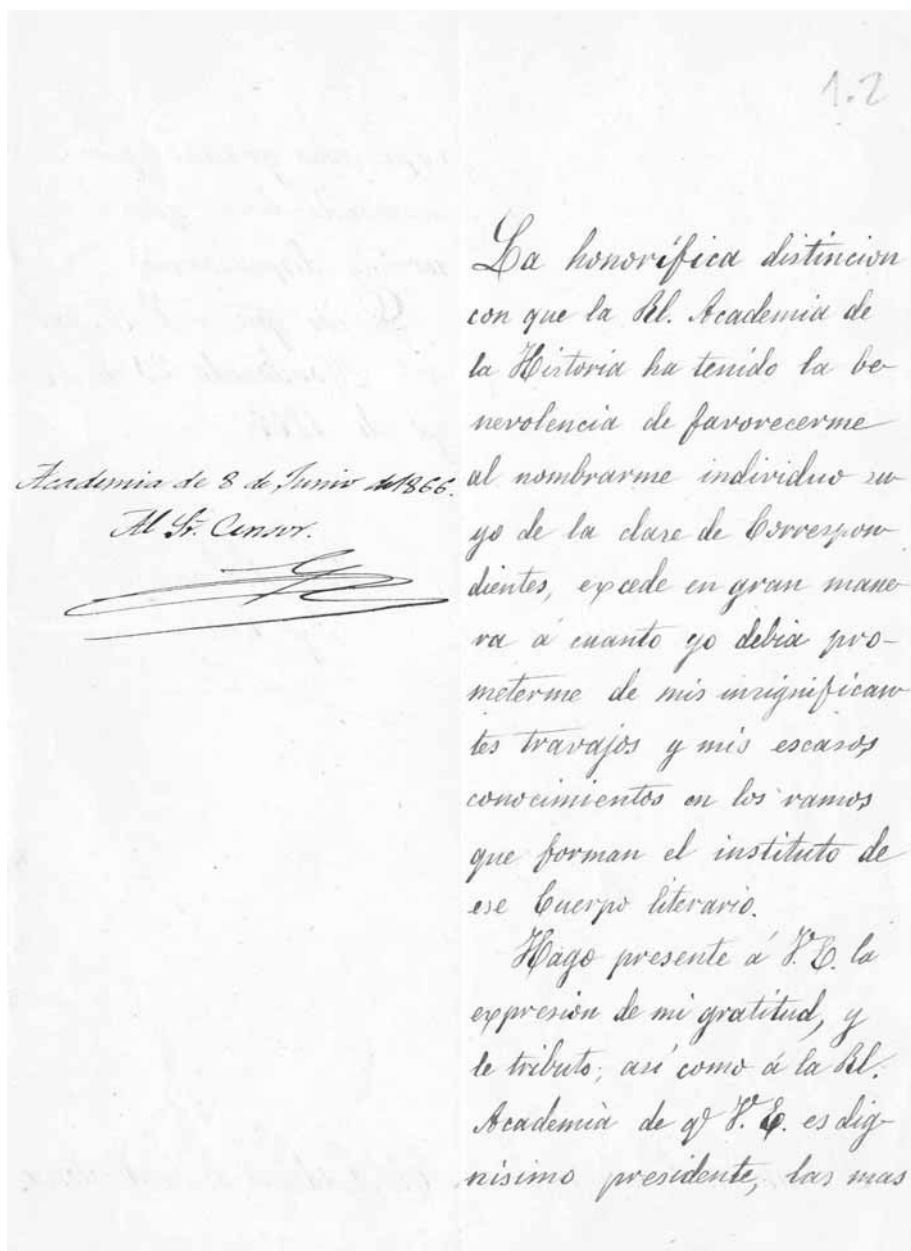 1.2
La honorífica distincion
con que la Rl. Academia de
la Historia ha tenido la be
nevolencia de favorecerme
al nombrarme individuo su
yo de la clase de Correspon
dientes, excede en gran mane
ra á cuanto yo debia pro-
meterme de mis insignifican
tes travajos y mis escasos
conocimientos en los ramos
que forman el instituto de
ese Cuerpo literario.
Hago presente á V. E. la
expresion de mi gratitud, y
le tributo, así como á la Rl.
Academia de q^e V. E. es dig-
nisimo presidente, las mas
Academia de 8 de Junio de 1866.
Al Sr. Censor.